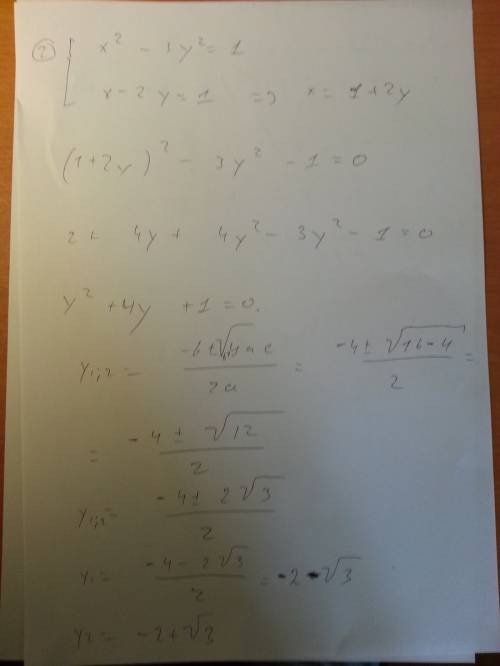 ② { x² - 3y² = 1
x - 2y = 1 => x = 1 + 2y
(1+2y)² - 3y² - 1 = 0
2 + 4y + 4y² - 3y² - 1 = 0
y² + 4y + 1 = 0.
y₁;₂ = (-b ± √4ac)/2a = (-4 ± √16-4)/2 =
= (-4 ± √12)/2
y₁;₂ = (-4 ± 2√3)/2
y₁ = (-4 - 2√3)/2 = -2 - √3
y₂ = -2 + √3